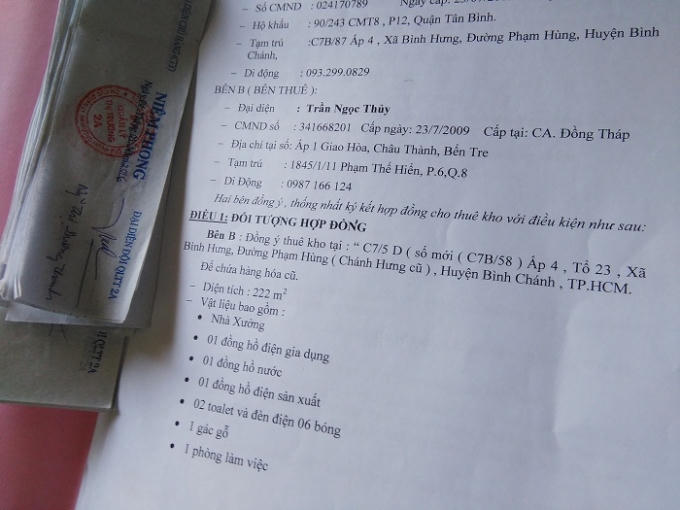 – Số CMND : 024170789 Ngày cấp:
– Hộ khẩu : 90/243 CMT8 , P12, Quận Tân Bình.
– Tạm trú :C7B/87 Ấp 4 , Xã Bình Hưng, Đường Phạm Hùng, Huyện Bình
Chánh,
– Di động : 093.299.0829
BÊN B ( BÊN THUÊ ):
– Đại diện : Trần Ngọc Thủy
– CMND số : 341668201 Cấp ngày: 23/7/2009 Cấp tại: CA. Đồng Tháp
– Địa chỉ tại số: Ấp 1 Giao Hòa, Châu Thành, Bến Tre
– Tạm trú : 1845/1/11 Phạm Thế Hiển, P.6,Q.8
– Di Động : 0987 166 124
Hai bên đồng ý , thống nhất ký kết hợp đồng cho thuê kho với điều kiện như sau:
ĐIỀU 1: ĐỐI TƯỢNG HỢP ĐỒNG
Bên B : Đồng ý thuê kho tại : “ C7/5 D ( số mới ( C7B/58 ) Ấp 4 , Tổ 23 , Xã
Bình Hưng, Đường Phạm Hùng ( Chánh Hưng cũ ) , Huyện Bình Chánh , TP.HCM.
Để chứa hàng hóa cũ.
– Diện tích : 222 m²
– Vật liệu bao gồm :
• Nhà Xưởng
• 01 đồng hồ điện gia dụng
• 01 đồng hồ nước
• 01 đồng hồ điện sản xuất
• 02 toalet và đèn điện 06 bóng
• 1 gác gỗ
• 1 phòng làm việc
NIÊM PHONG
QUẢN LÝ
THỊ TRƯỜNG
2A
ĐẠI DIỆN ĐỘI QLTT 2A
QLTT 2A